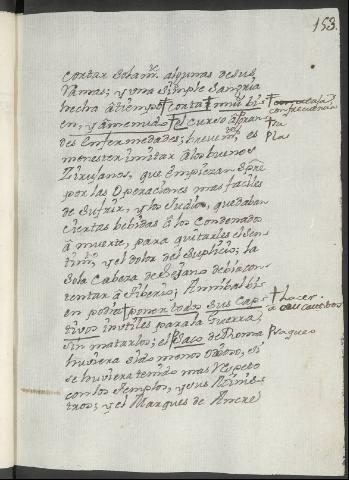 153.
Cortar Solam.te algunas de sus
Ramas; y una simple Sangria
hecha à tiempo corta mui bi-
en, y à menudo el curso à gran-
des Enfermedades; brevem.te es
menester imitar à los buenos
Zirujanos, que empiezan spre
por las Operaciones mas faciles
de sufrir, y los Judios, que daban
ciertas bebidas à los Condenados
à muerte, para quitarles el sen-
tim.to y el dolor del Suplicio; la
Sola Cabeza de Sejano debia con-
tentar à Tiberio; Annibal bi-
en podia poner todos sus Cap-
tivos inutiles para la Guerra,
sin matarlos; el Saco de Roma
huviera sido menos odioso, si
se huviera tenido mas respeto
con los templos, y sus Minis-
tros; y el Marques de Ancre
con frecuencia
Pla
hacer